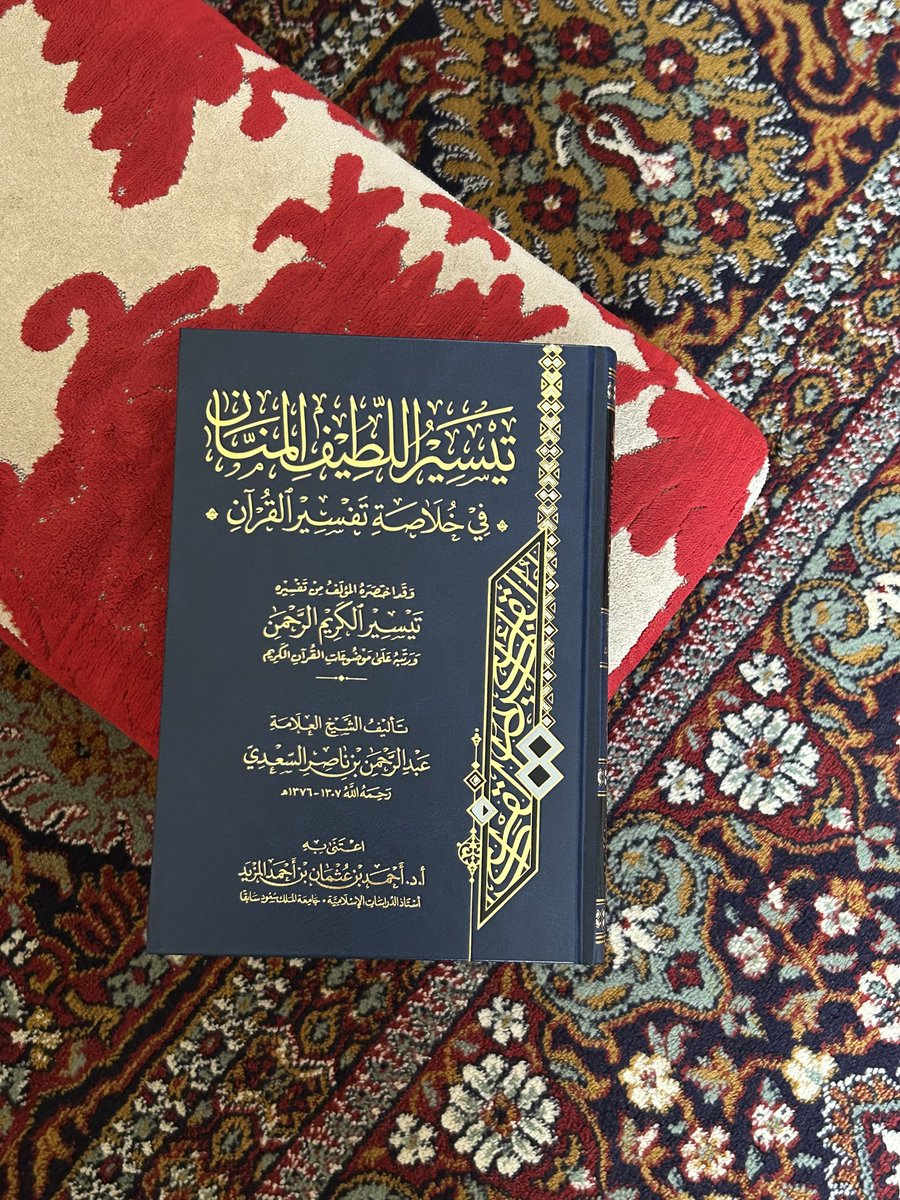 تَيْسِيْرُ اللَّطِيْفِ المَنَّان
فِي خُلَاصَةِ تَفْسِيْرِ القُرْآنِ
وَقَد اخْتَصَرَهُ المُؤَلِّفُ مِنْ تَفْسِيْرِهِ
تَيْسِيْرِ الكَرِيْمِ الرَّحْمَنِ
وَرَتَّبَهُ عَلَى مَوْضُوعَاتِ القُرْآنِ الكَرِيْمِ
تَأْلِيْفُ الشَّيْخِ العَلَّامَةِ
عَبْدِ الرَّحْمَنِ بْنِ نَاصِرٍ السَّعْدِيِّ
رَحِمَهُ اللَّهُ ١٣٠٧ - ١٣٧٦هـ
اعْتَنَى بِهِ
أ.د. أَحْمَدُ بْنُ عُثْمَانَ بْنِ أَحْمَدَ المَزْيَد
أُسْتَاذُ الدِّرَاسَاتِ الإِسْلَامِيَّةِ - جَامِعَةُ المَلِكِ سُعُود سَابِقًا